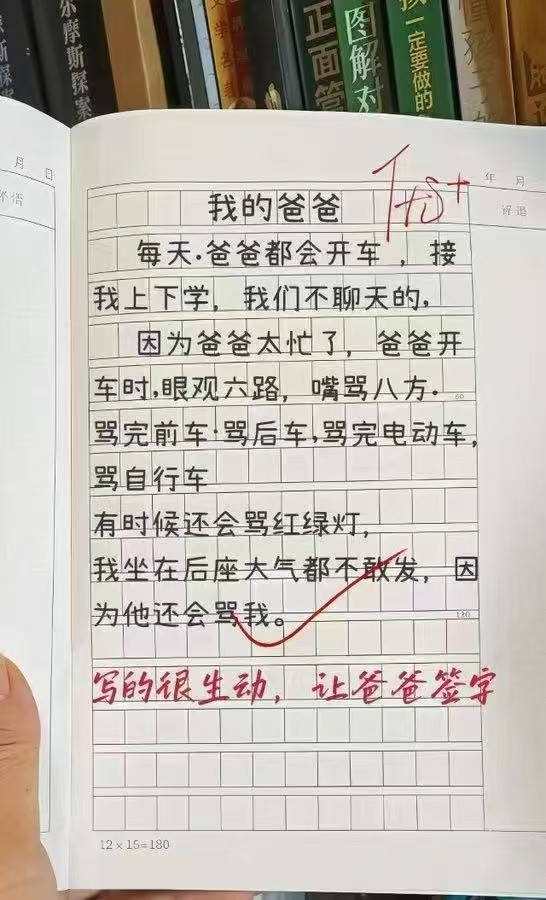 尔摩斯探案
摩斯探案
正面管
图解对
孩一定要做的
月 日
年 月
评语
优+
我的爸爸
每天·爸爸都会开车，接
我上下学，我们不聊天的，
因为爸爸太忙了，爸爸开
车时，眼观六路，嘴骂八方·
60
骂完前车·骂后车，骂完电动车，
骂自行车
有时候还会骂红绿灯，
我坐在后座大气都不敢发，因
为他还会骂我。
120
写的很生动，让爸爸签字
12×15=180